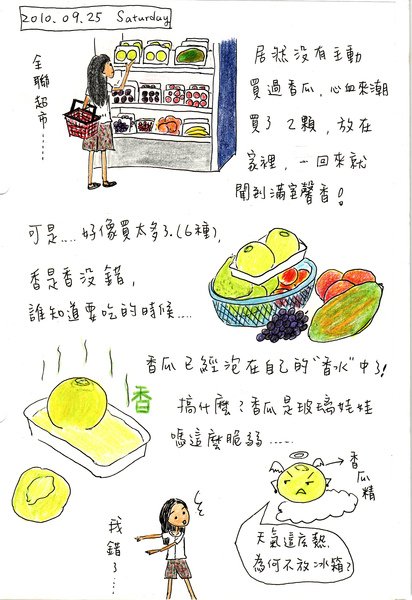 2010.09.25 Saturday
全聯超市......
居然沒有主動
買過香瓜,心血來潮
買了2顆,放在
家裡,一回來就
聞到滿室馨香!
可是....好像買太多了.(6種),
香是香沒錯,
誰知道要吃的時候....
香瓜已經泡在自己的"香水"中了!
香
搞什麼?香瓜是玻璃娃娃
嗎這麼脆弱.....
香瓜精
天氣這麼熱,
為何不放冰箱?
我錯了...